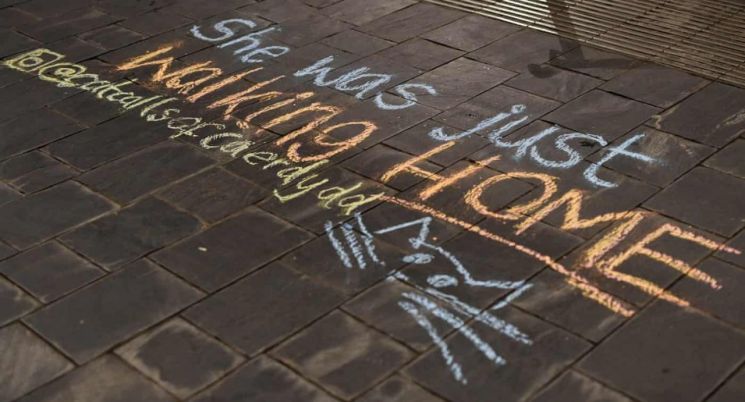 She was Just
walking HOME
@catcalls_of_Caerdydd